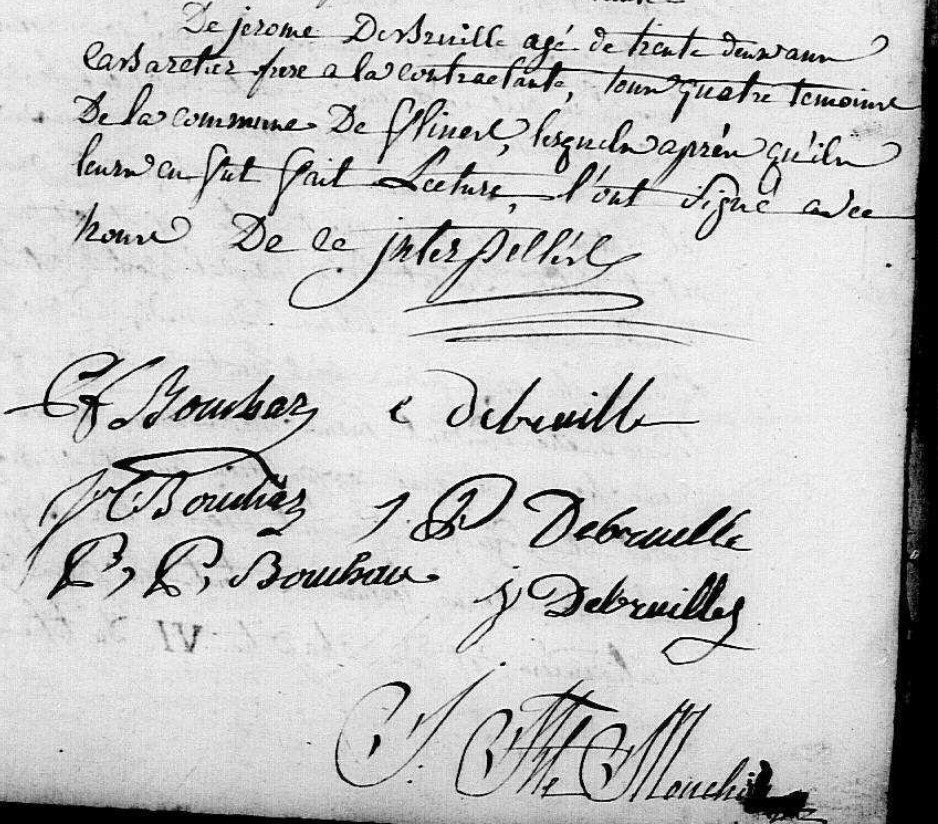 De jerome Debruille agé de trente deux ans
Cabaretier frere a la contractante, tous quatre temoins
De la commune De flines, lesquels aprés qu'ils
leurs en fut fait Lecture, l'ont signé avec
nous De ce interpellés
Bouchez e debruille
Bouchez j P Debruille
P, P, Bouchau j Debruille
J. Bte Mouch